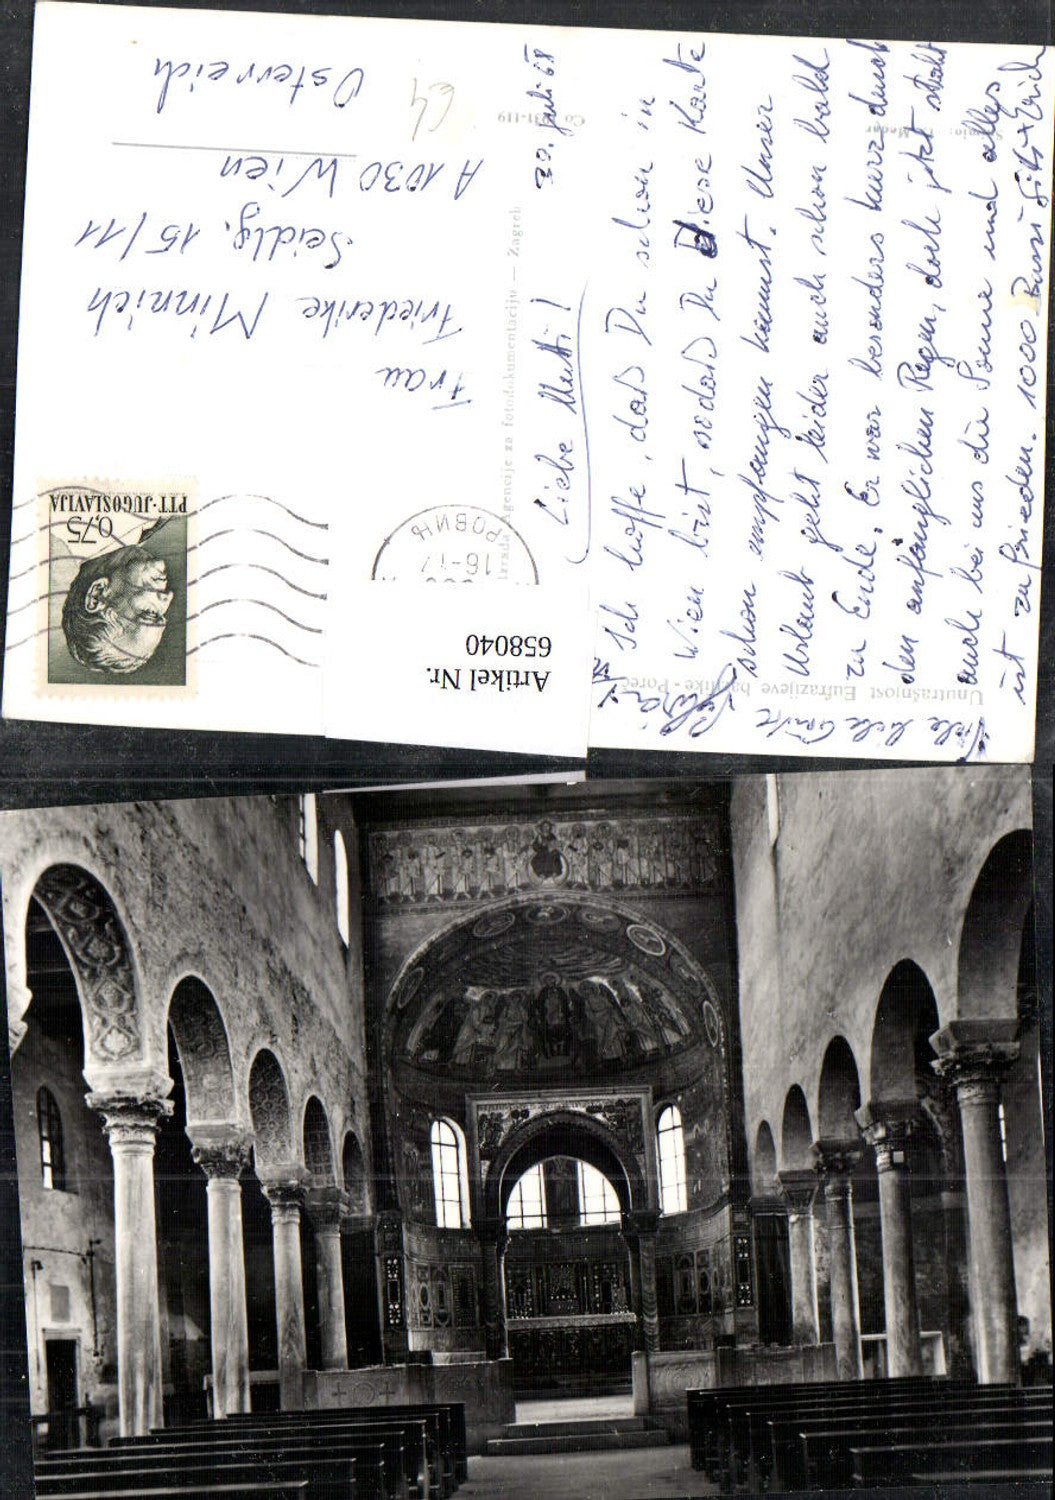 30. Juli 68
Liebe Mutti!
Ich hoffe, daß Du schon in
Wien bist, sodaß Du Diese Karte
schon empfangen kannst. Unser
Urlaub geht leider auch schon bald
zu Ende. Er war besonders kurz durch
den anfänglichen Regen, doch jetzt strahlt
auch bei uns die Sonne und alles
ist zufrieden. 1000 Bussi Gitti + Erich
Viele liebe Grüße
Frau
Friederike Minnich
Seidlg. 15/11
A 1030 Wien
Österreich
64
PTT·JUGOSLAVIJA
0,75
РОВИЊ
Izrada Agencije za fotodokumentaciju — Zagreb
Unutrašnjost Eufrazijeve bazilike - Poreč
Artikel Nr.
658040